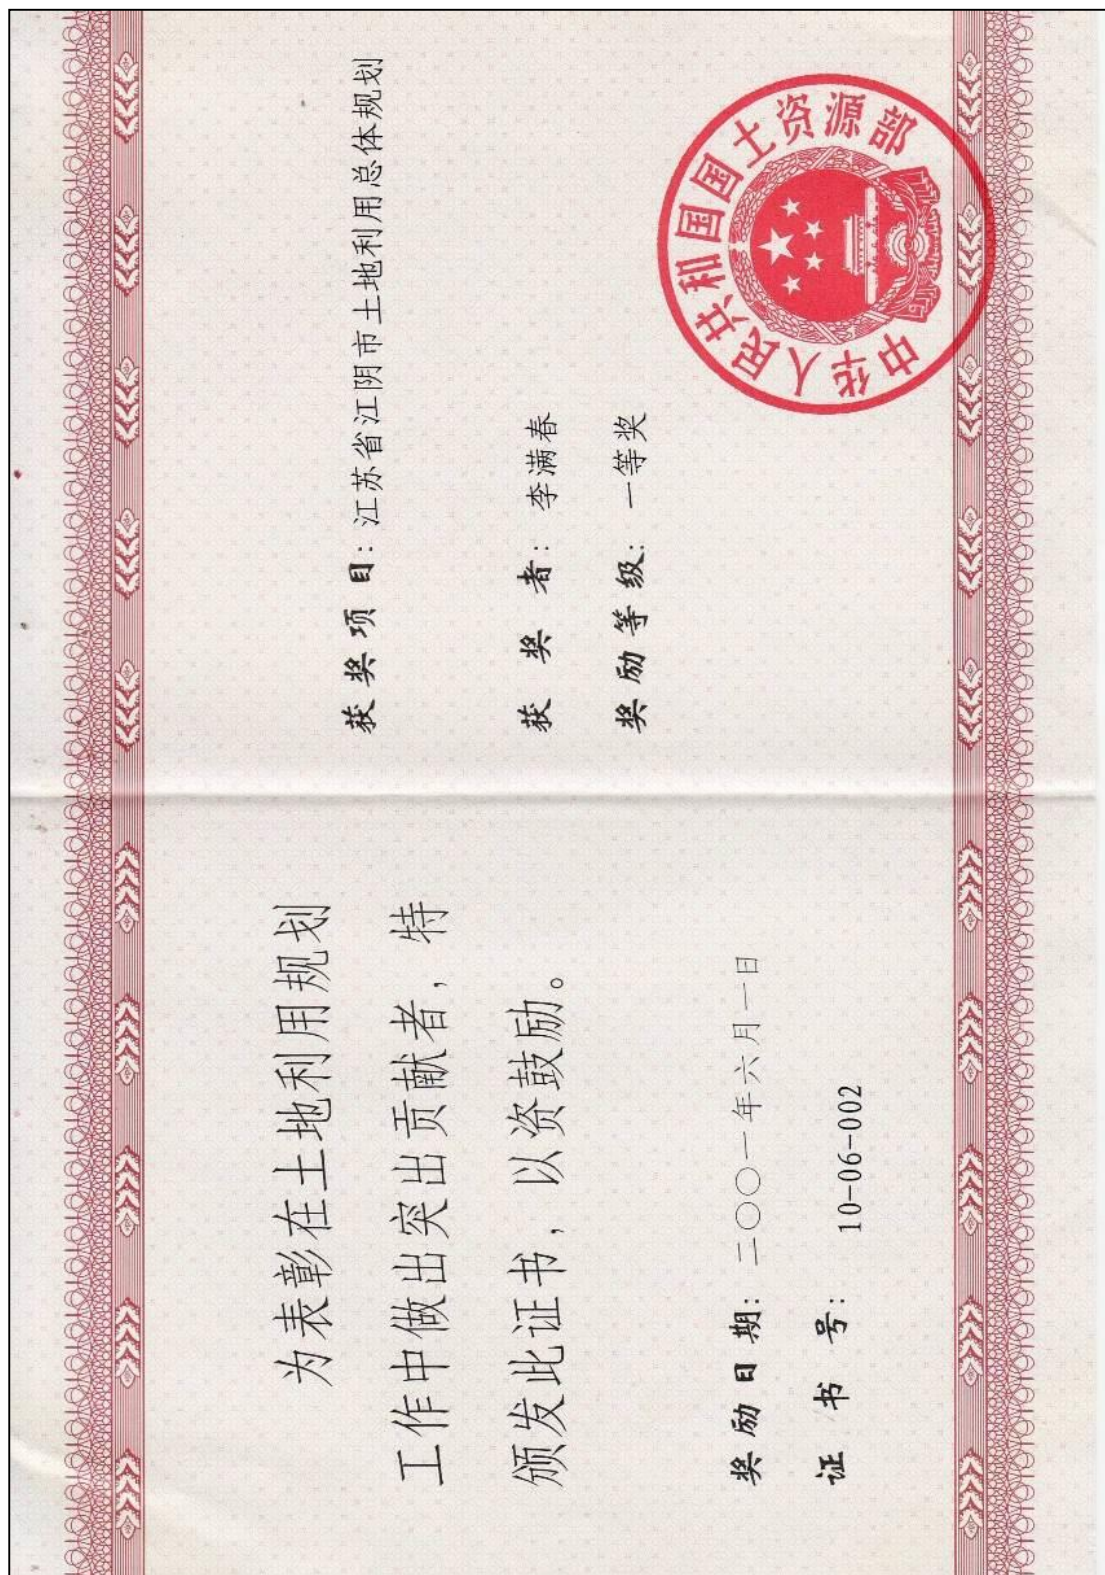 为表彰在土地利用规划
工作中做出突出贡献者，特
颁发此证书，以资鼓励。
奖励日期：二〇〇一年六月一日
证书号：10-06-002
获奖项目：江苏省江阴市土地利用总体规划
获奖者：李满春
奖励等级：一等奖
中华人民共和国国土资源部